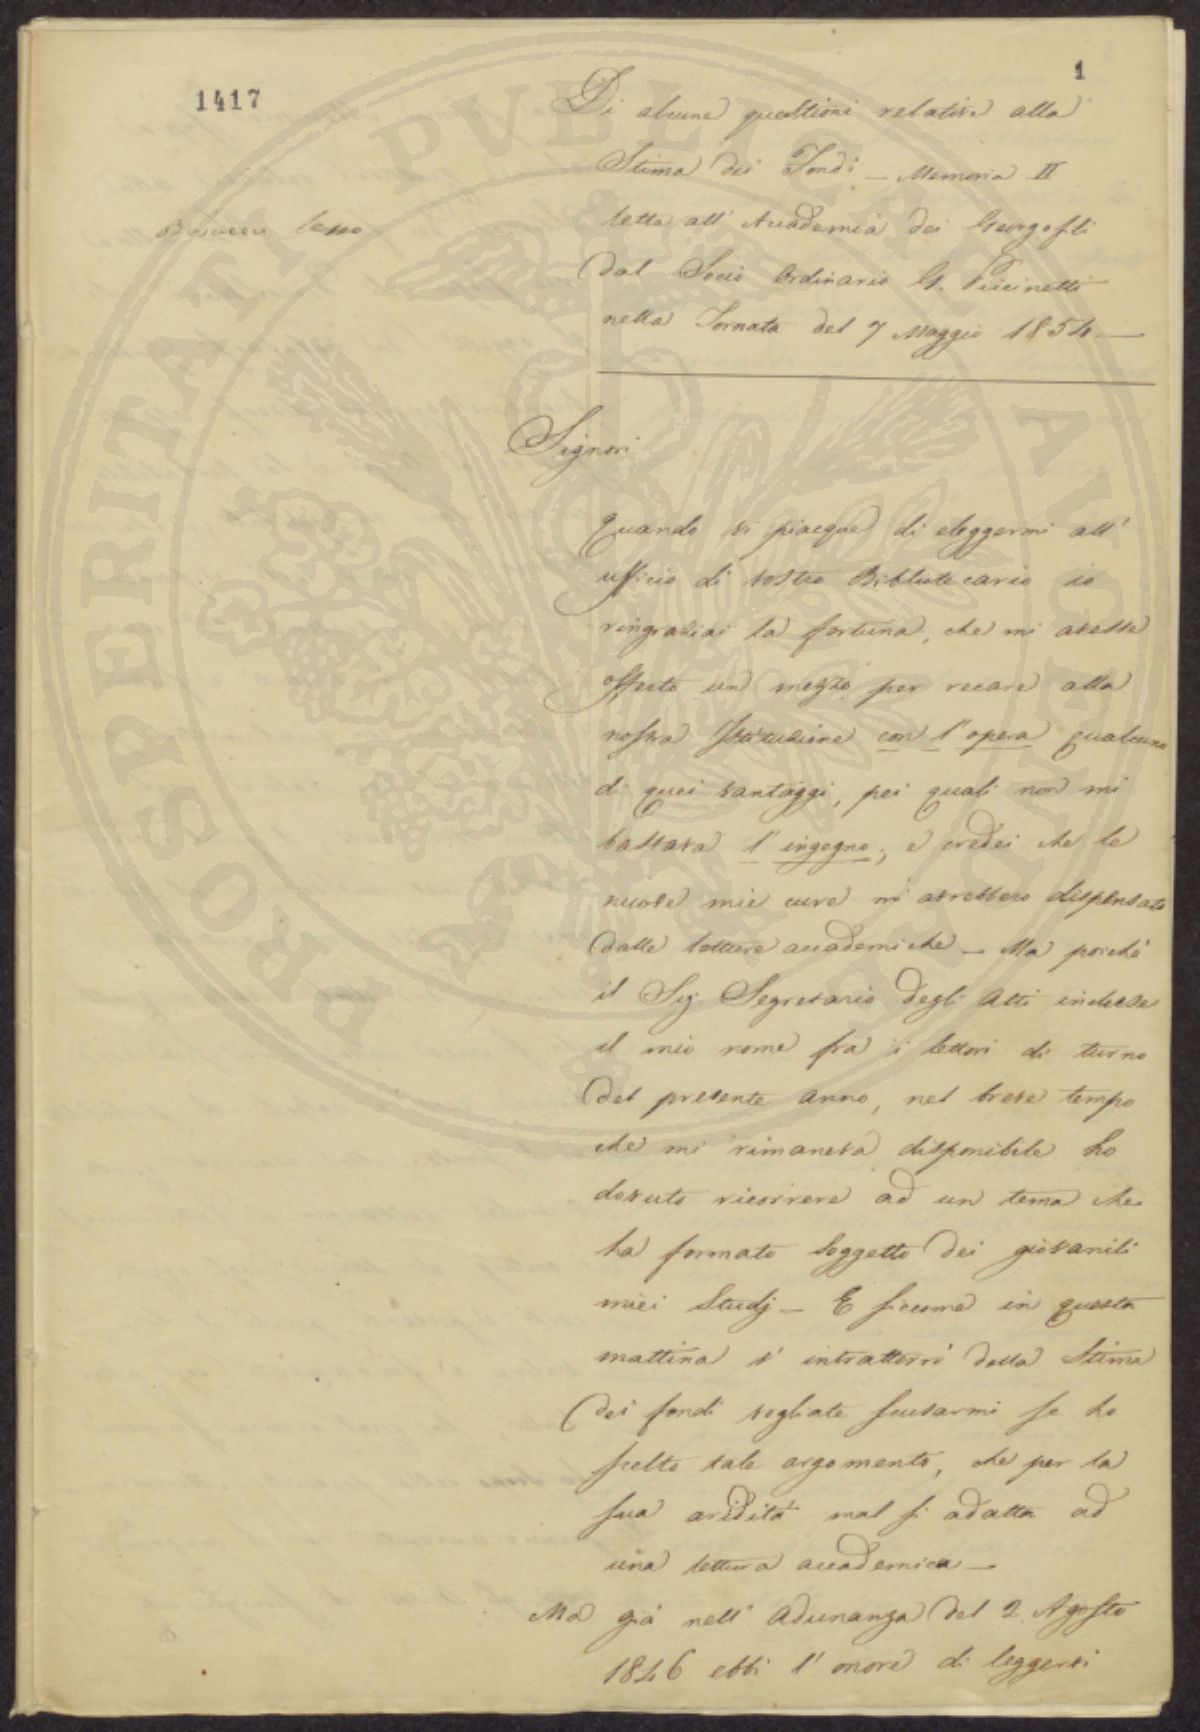 1417
1
Di alcune questioni relative alla
Stima dei Fondi – Memoria II
letta all' Accademia dei Georgofili
dal Socio Ordinario G.
nella Tornata del 7 Maggio 1854 –
Signori
Quando vi piacque di eleggermi all'
ufficio di vostro Bibliotecario io
ringraziai la fortuna, che mi avesse
offerto un mezzo per recare alla
nostra Istituzione con l'opera qualcuno
di quei vantaggi, pei quali non mi
bastava l'ingegno; e credei che le
nuove mie cure mi avrebbero dispensato
dalle letture accademiche – Ma poiché
il Sig. Segretario degli Atti incluse
il mio nome fra i lettori di turno
del presente anno, nel breve tempo
che mi rimaneva disponibile ho
dovuto ricorrere ad un tema che
ha formato soggetto dei giovanili
miei Studj – E siccome in questa
mattina v' intratterrò della Stima
dei fondi vogliate scusarmi se ho
scelto tale argomento, che per la
sua aridità mal si adatta ad
una lettura accademica –
Ma già nell' Adunanza del 2 Agosto
1846 ebbi l' onore di leggervi
PROSPERITATI PVBLICAE AVGENDAE